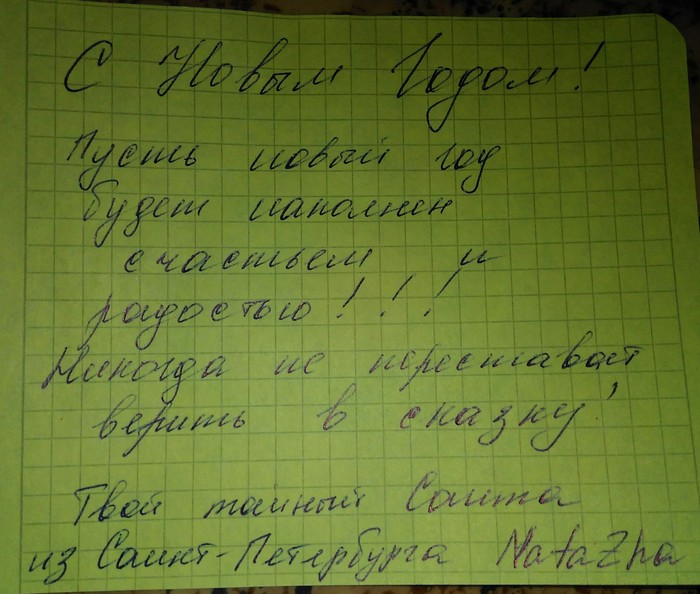 С Новым Годом!
Пусть новый год
будет наполнен
счастьем и
радостью!!!
Никогда не переставает
верить в сказку!
Твой тайный Санта
из Санкт-Петербурга NataZha